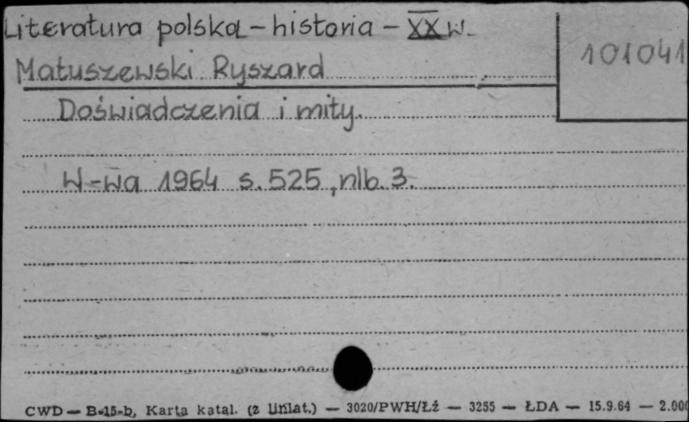 Literatura polska - historia - XX w.
101041
Matuszewski Ryszard
Doświadczenia i mity.
W-wa 1964 s. 525, nlb. 3.
CWD — B-15-b, Karta katal. (z liniat.) — 3020/PWH/Łź — 3255 — ŁDA — 15.9.64 — 2.000